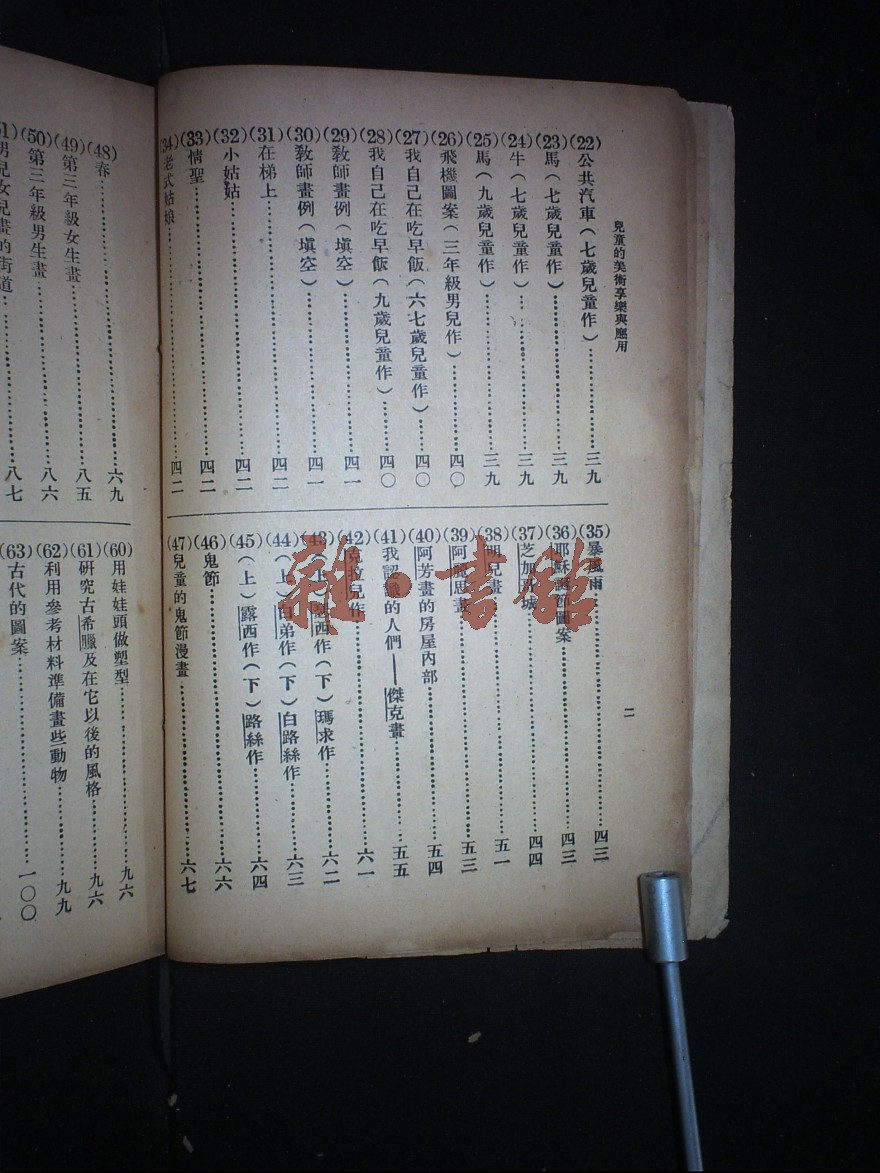 兒童的美術享樂與應用
二
(22)公共汽車(七歲兒童作)……三九
(23)馬(七歲兒童作)……三九
(24)牛(七歲兒童作)……三九
(25)馬(九歲兒童作)……三九
(26)飛機圖案(三年級男兒作)……四〇
(27)我自己在吃早飯(六七歲兒童作)……四〇
(28)我自己在吃早飯(九歲兒童作)……四〇
(29)敎師畫例(塡空)……四一
(30)敎師畫例(塡空)……四一
(31)在梯上……四二
(32)小姑姑……四二
(33)情聖……四二
(34)老式姑娘……四二
(35)暴風雨……四三
(36)耶穌誕節圖案……四三
(37)芝加哥城……四四
(38)兒畫……五一
(39)阿思畫……五三
(40)阿芳畫的房屋內部……五四
(41)我認識的人們——傑克畫……五五
(42)克拉兒作……六一
(43)(上)西作(下)瑪求作……六二
(44)(上)白弟作(下)白路絲作……六三
(45)(上)露西作(下)路絲作……六四
(46)鬼節……六六
(47)兒童的鬼節漫畫……六七
(48)春……六九
(49)第三年級女生畫……八五
(50)第三年級男生畫……八六
男兒女兒畫的街道……八七
(60)用娃娃頭做塑型……九六
(61)研究古希臘及在它以後的風格……九六
(62)利用參考材料準備畫些動物……九九
(63)古代的圖案……一〇〇
雜·書館